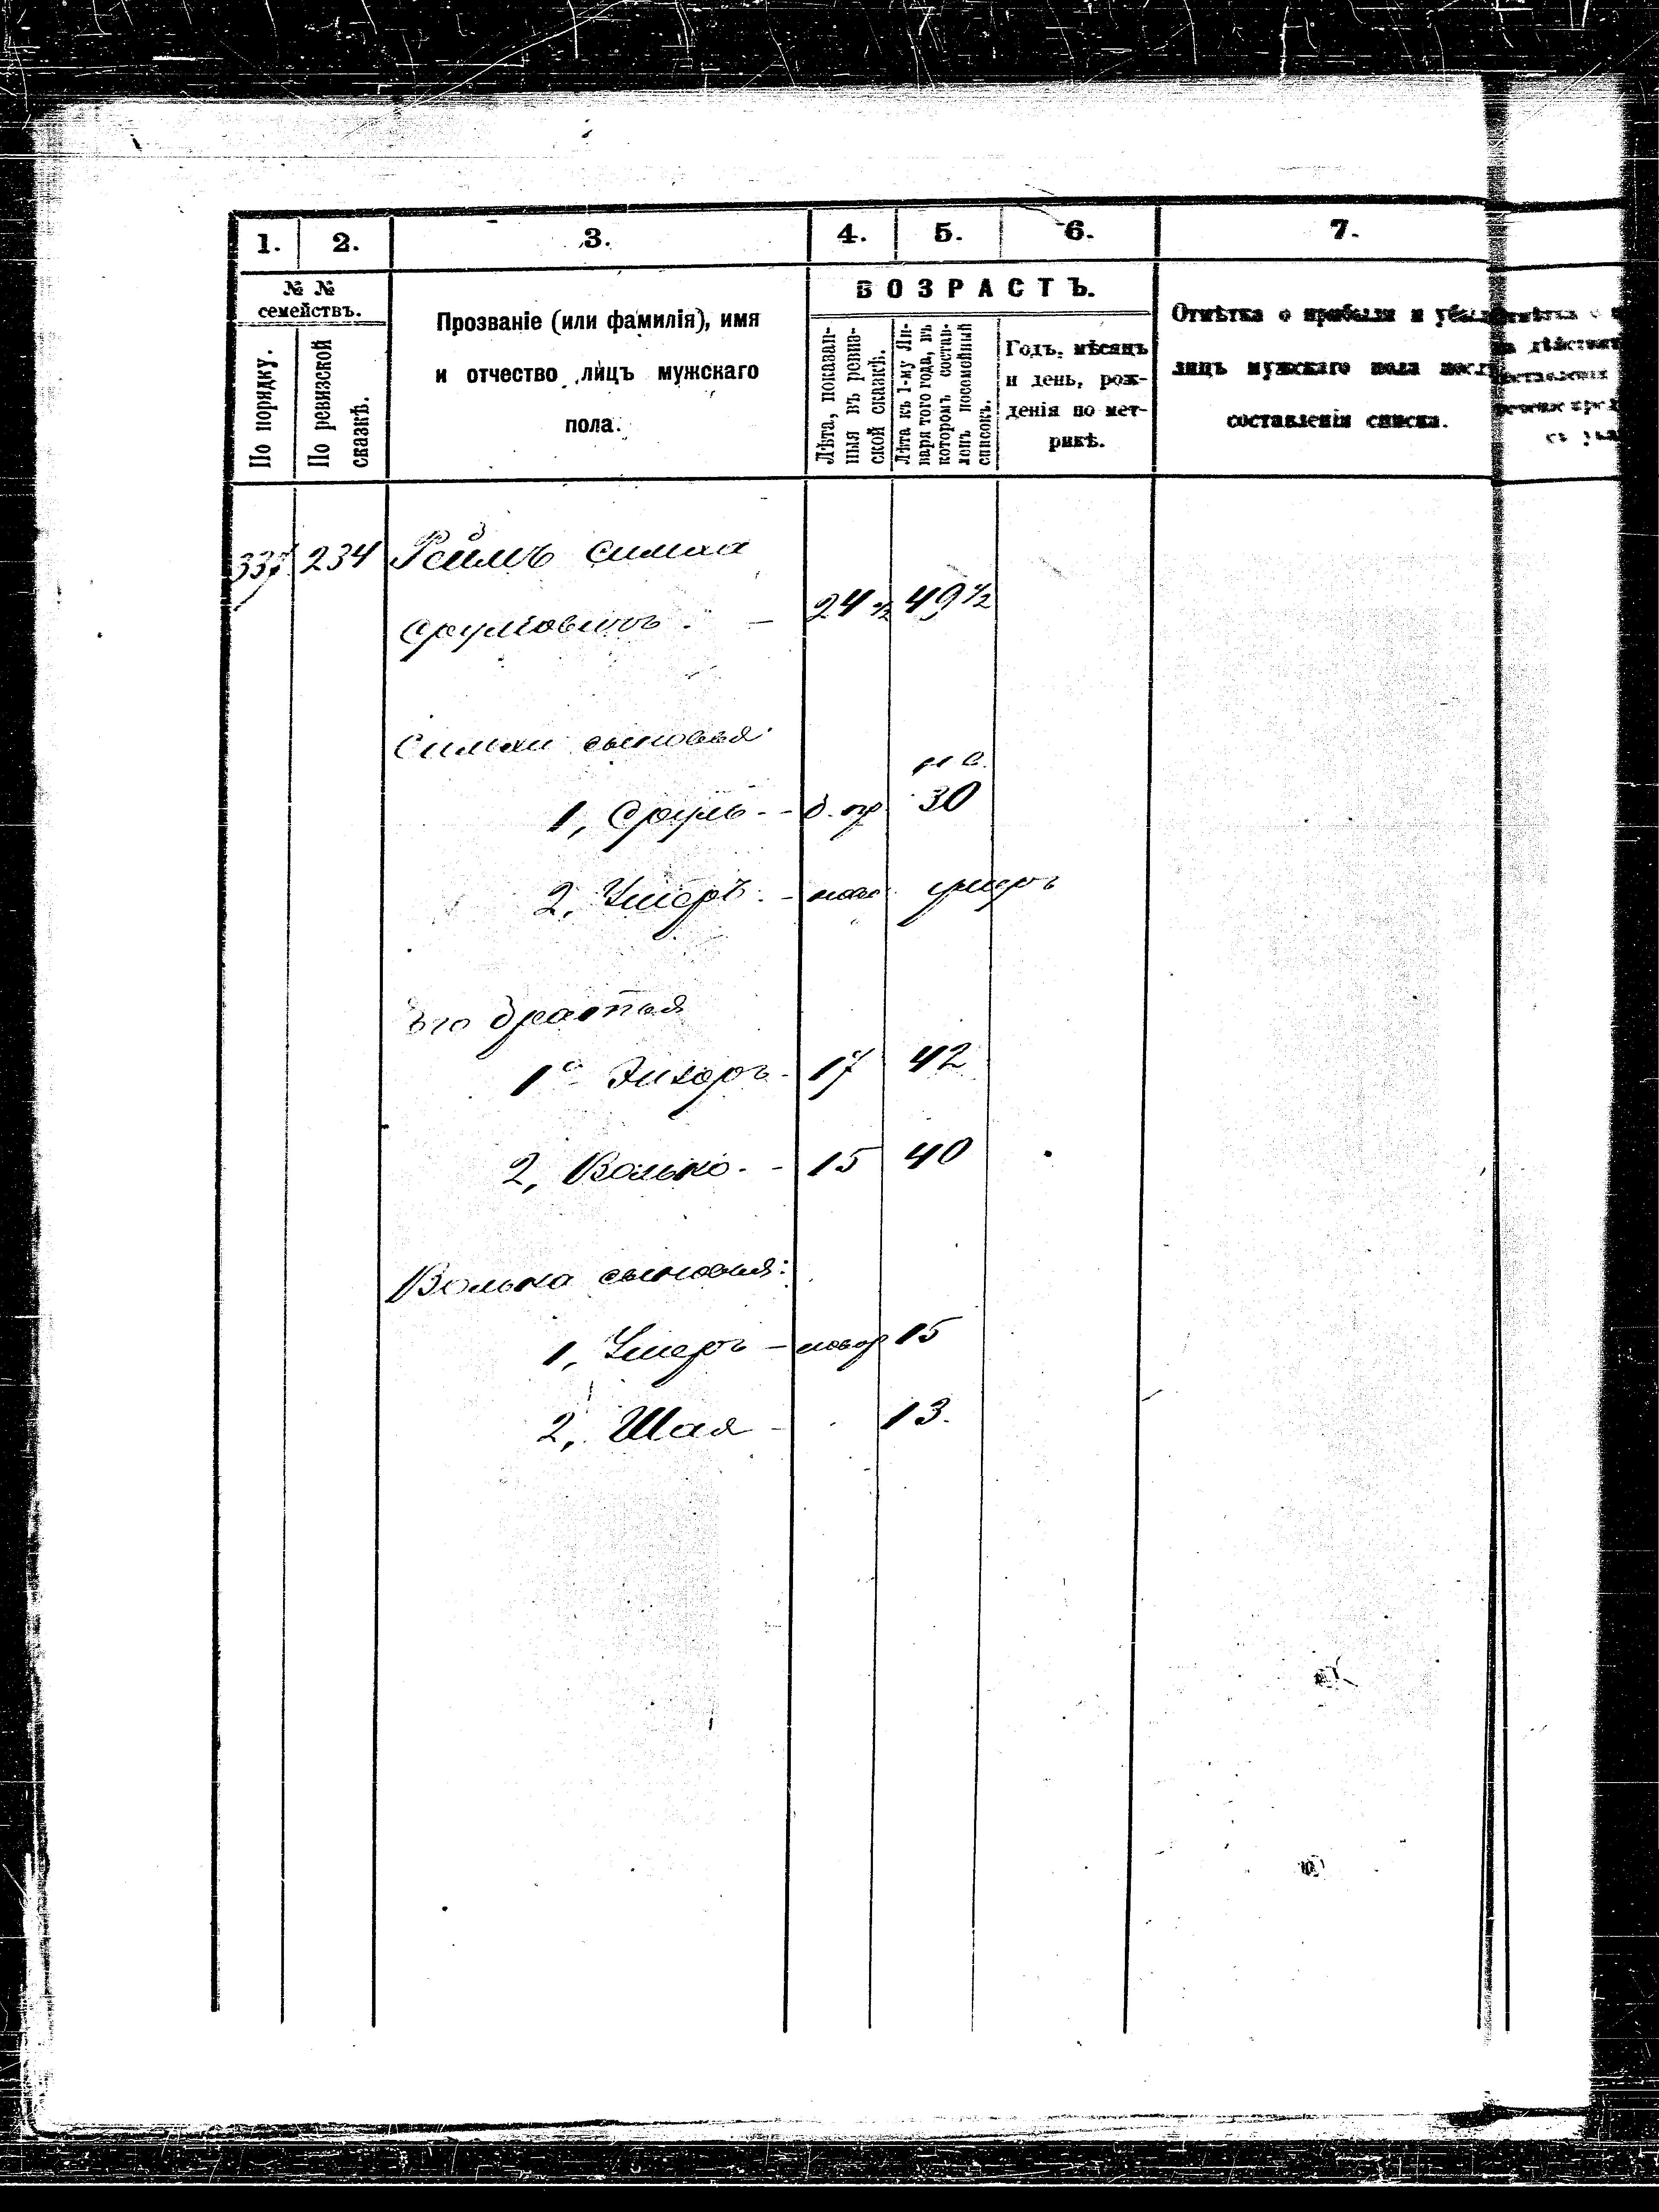 1. 2. 3. 4. 5. 6. 7.
№ №
семействъ.
По порядку.
По ревизской
сказкѣ.
Прозваніе (или фамилія), имя
и отчество лицъ мужскаго
пола.
ВОЗРАСТЪ.
Лѣта, показан-
ныя въ ревиз-
ской сказкѣ.
Лѣта къ 1-му Ян-
варя того года, въ
которомъ состав-
ленъ посемейный
списокъ.
Годъ, мѣсяцъ
и день, рож-
денія по мет-
рикѣ.
Отмѣтка о прибыли и
лицъ мужскаго пола
составленія списка.
337 234 Симха
Сруліовичъ. — 24 ½ 49 ½
Симхи сыновья
1, Сруль - - 30
2, Умеръ. - умеръ
Его братья
1 - 17 42
2, Волько. - 15 40
Волька сыновья:
1, Умеръ - новор 15
2, Шая - 13.